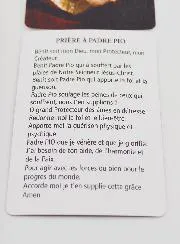 PRIÈRE À PADRE PIO
Petit soit mon Dieu, mon Protecteur, mon
Créateur.
Petit Padre Pio qui a souffert par les
plaies de Notre Seigneur Jésus Christ.
Petit soit Padre Pio qui apporte la foi et la
guérison.
Padre Pio soulage les peines de ceux qui
souffrent, nous t'en supplions ?
O grand Protecteur des âmes en détresse
Redonne moi la foi et le bien-être.
Apporte moi la guérison physique et
psychique
Padre Pio que je vénère et que je glorifie.
J'ai besoin de ton aide, de l'harmonie et
de la Paix.
Pour agir avec les forces du bien pour le
progrès du monde.
Accorde moi je t'en supplie cette grâce
Amen